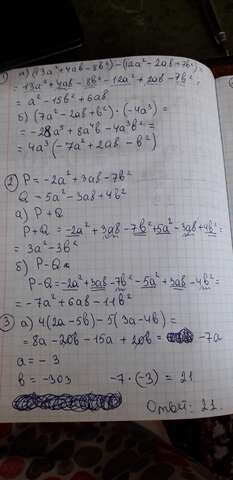 1) а) (13a² + 4ab - 8b²) - (12a² - 2ab + 7b²) =
= 13a² + 4ab - 8b² - 12a² + 2ab - 7b² =
= a² - 15b² + 6ab
б) (7a² - 2ab + b²) · (-4a³) =
= -28a⁵ + 8a⁴b - 4a³b² =
= 4a³(-7a² + 2ab - b²)
2) P = -2a² + 3ab - 7b²
Q = 5a² - 3ab + 4b²
а) P + Q
P + Q = -2a² + 3ab - 7b² + 5a² - 3ab + 4b² =
= 3a² - 3b²
б) P - Q
P - Q = -2a² + 3ab - 7b² - 5a² + 3ab - 4b² =
= -7a² + 6ab - 11b²
3) а) 4(2a - 5b) - 5(3a - 4b) =
= 8a - 20b - 15a + 20b = -7a
a = -3
b = -303 -7 · (-3) = 21
Ответ: 21.